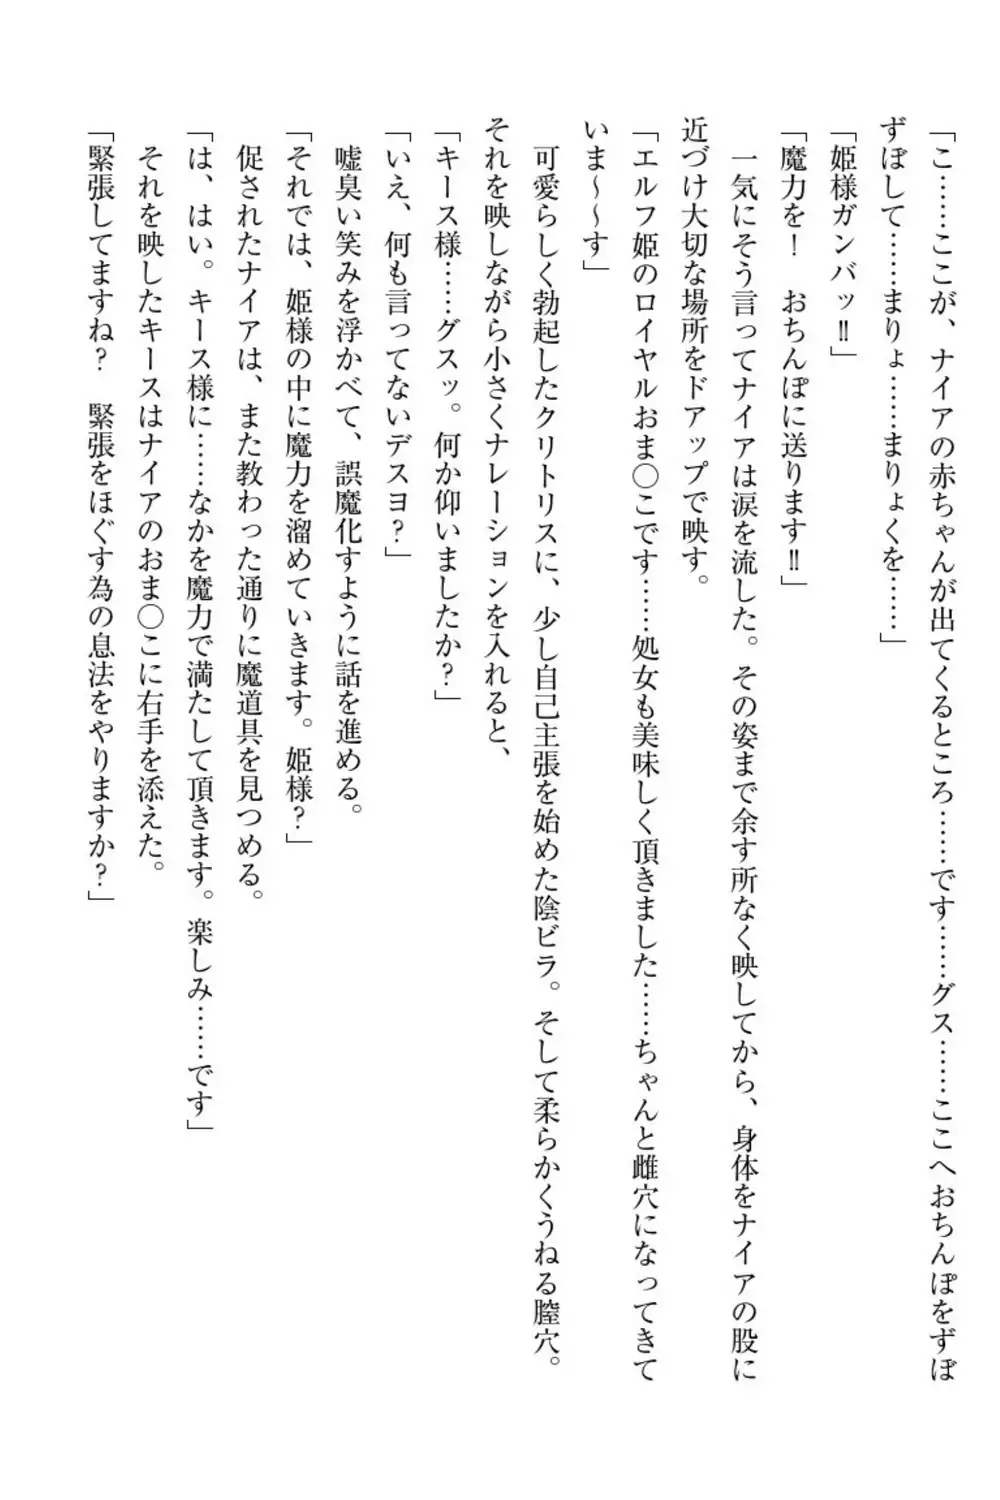 「こ……ここが、ナイアの赤ちゃんが出てくるところ……です……グス……ここへおちんぽをずぼ
ずぼして……まりょ……まりょくを……」
「姫様ガンバッ‼」
「魔力を！　おちんぽに送ります‼」
　一気にそう言ってナイアは涙を流した。その姿まで余す所なく映してから、身体をナイアの股に
近づけ大切な場所をドアップで映す。
「エルフ姫のロイヤルおま〇こです……処女も美味しく頂きました……ちゃんと雌穴になってきて
いま～～す」
　可愛らしく勃起したクリトリスに、少し自己主張を始めた陰ビラ。そして柔らかくうねる膣穴。
それを映しながら小さくナレーションを入れると、
「キース様……グスッ。何か仰いましたか？」
「いえ、何も言ってないデスヨ？」
　嘘臭い笑みを浮かべて、誤魔化すように話を進める。
「それでは、姫様の中に魔力を溜めていきます。姫様？」
　促されたナイアは、また教わった通りに魔道具を見つめる。
「は、はい。キース様に……なかを魔力で満たして頂きます。楽しみ……です」
　それを映したキースはナイアのおま〇こに右手を添えた。
「緊張してますね？　緊張をほぐす為の息法をやりますか？」